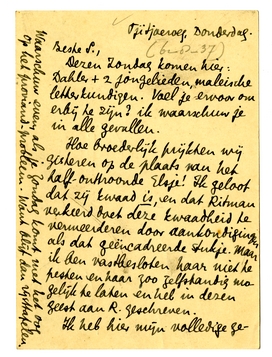 Tjitjoeroeg, Donderdag.
(6-5-37)
Beste S.,
Dezen Zondag komen hier:
Dahler + 2 jongelieden, maleische
letterkundigen. Voel je ervoor om
erbij te zijn? Ik waarschuw je
in alle gevallen.
Hoe broederlijk prijkten wij
gisteren op de plaats van het
half-onttroonde Elsje! Ik geloof
dat zij kwaad is, en dat Ritman
verkeerd doet deze kwaadheid te
vermeerderen door aankondigingen
als dat geëncadreerde stukje. Maar
ik ben vastbesloten haar niet te
pesten en haar zoo zelfstandig mo-
gelijk te laten en heb in dezen
geest aan R. geschreven.
Ik heb hier mijn volledige ge-
Waarschuw even, als je Zondag komt, met het oog
op het proviand-probleem. Want blijf dan rijsttafelen.